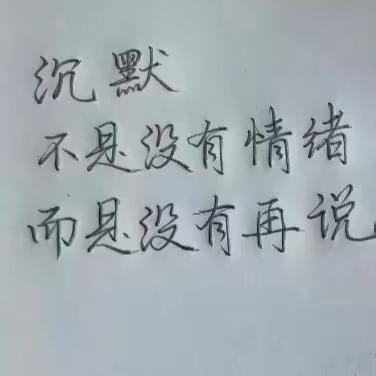 沉默
不是没有情绪
而是没有再说